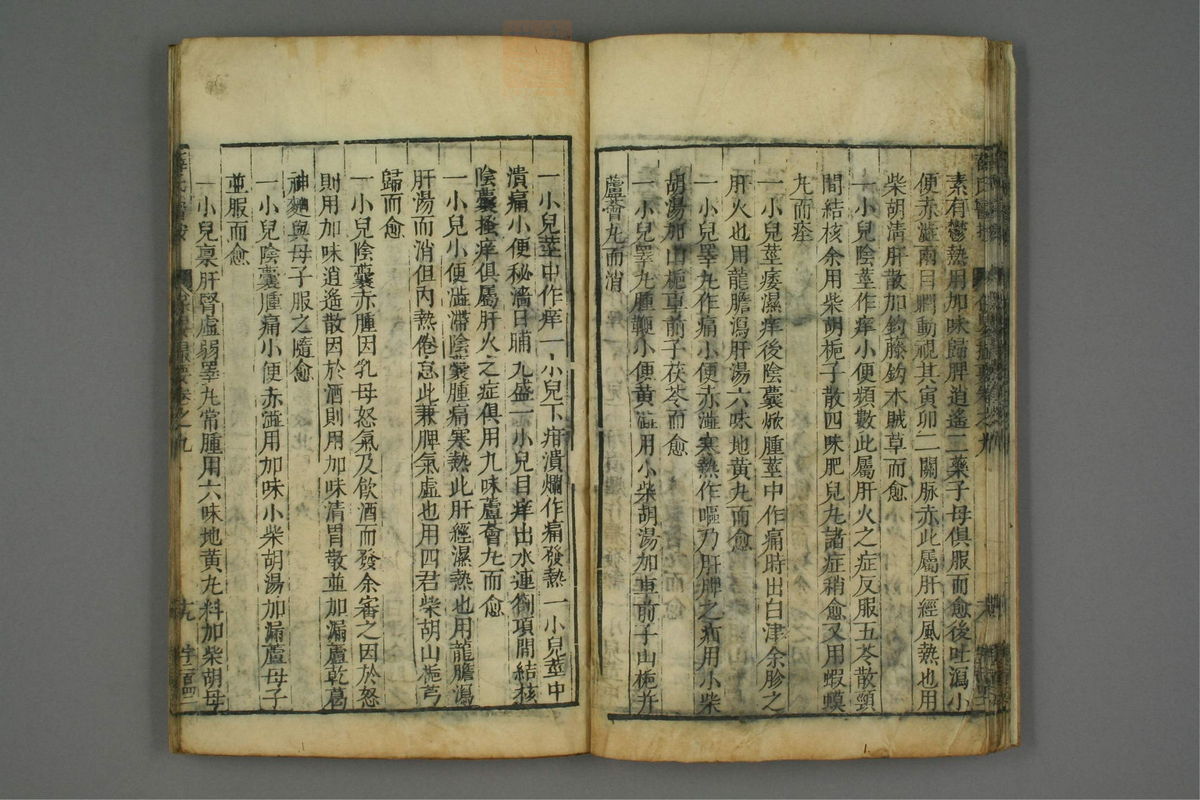 素有鬱熱用加味歸脾逍遙二藥子母俱服而愈後吐瀉小
便赤澁兩目瞤動視其寅卯二關脉赤此屬肝經風熱也用
柴胡清肝散加鈎藤鈎木賊草而愈
一小兒陰莖作痒小便頻數此屬肝火之症反服五苓散頸
間結核余用柴胡梔子散四味肥兒丸諸症稍愈又用蝦蟆
丸而痊
一小兒莖痿濕痒後陰囊焮腫莖中作痛時出白津余胗之
肝火也用龍膽瀉肝湯六味地黃丸而愈
一小兒睪丸作痛小便赤澁寒熱作嘔乃肝脾之疳用小柴
胡湯加山梔車前子茯苓而愈
一小兒睪丸腫鞕小便黃澁用小柴胡湯加車前子山梔并
蘆薈丸而消
一小兒莖中作痒一小兒下疳潰爛作痛發熱一小兒莖中
潰痛小便秘濇日晡尢盛一小兒目痒出水連劄項間結核
陰囊搔痒俱屬肝火之症俱用九味蘆薈丸而愈
一小兒小便澁滯陰囊腫痛寒熱此肝經濕熱也用龍膽瀉
肝湯而消但內熱倦怠此兼脾氣虛也用四君柴胡山梔芎
歸而愈
一小兒陰囊赤腫因乳母怒氣及飲酒而發余審之因於怒
則用加味逍遙散因於酒則用加味清胃散並加漏蘆乾葛
神麯與母子服之隨愈
一小兒陰囊腫痛小便赤澁用加味小柴胡湯加漏蘆母子
並服而愈
一小兒禀肝腎虛弱睪丸常腫用六味地黃丸料加柴胡母
卷之九
十九